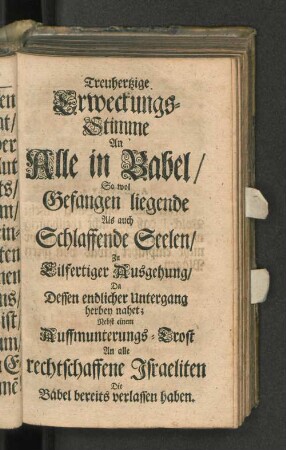 Treuhertzige
Erweckungs-
Stimme
An
Alle in Babel/
So wol
Gefangen liegende
Als auch
Schlaffende Seelen/
Zu
Eilfertiger Ausgehung/
Da
Dessen endlicher Untergang
herbey nahet;
Nebst einem
Auffmunterungs-Trost
An alle
rechtschaffene Israeliten
Die
Babel bereits verlassen haben.